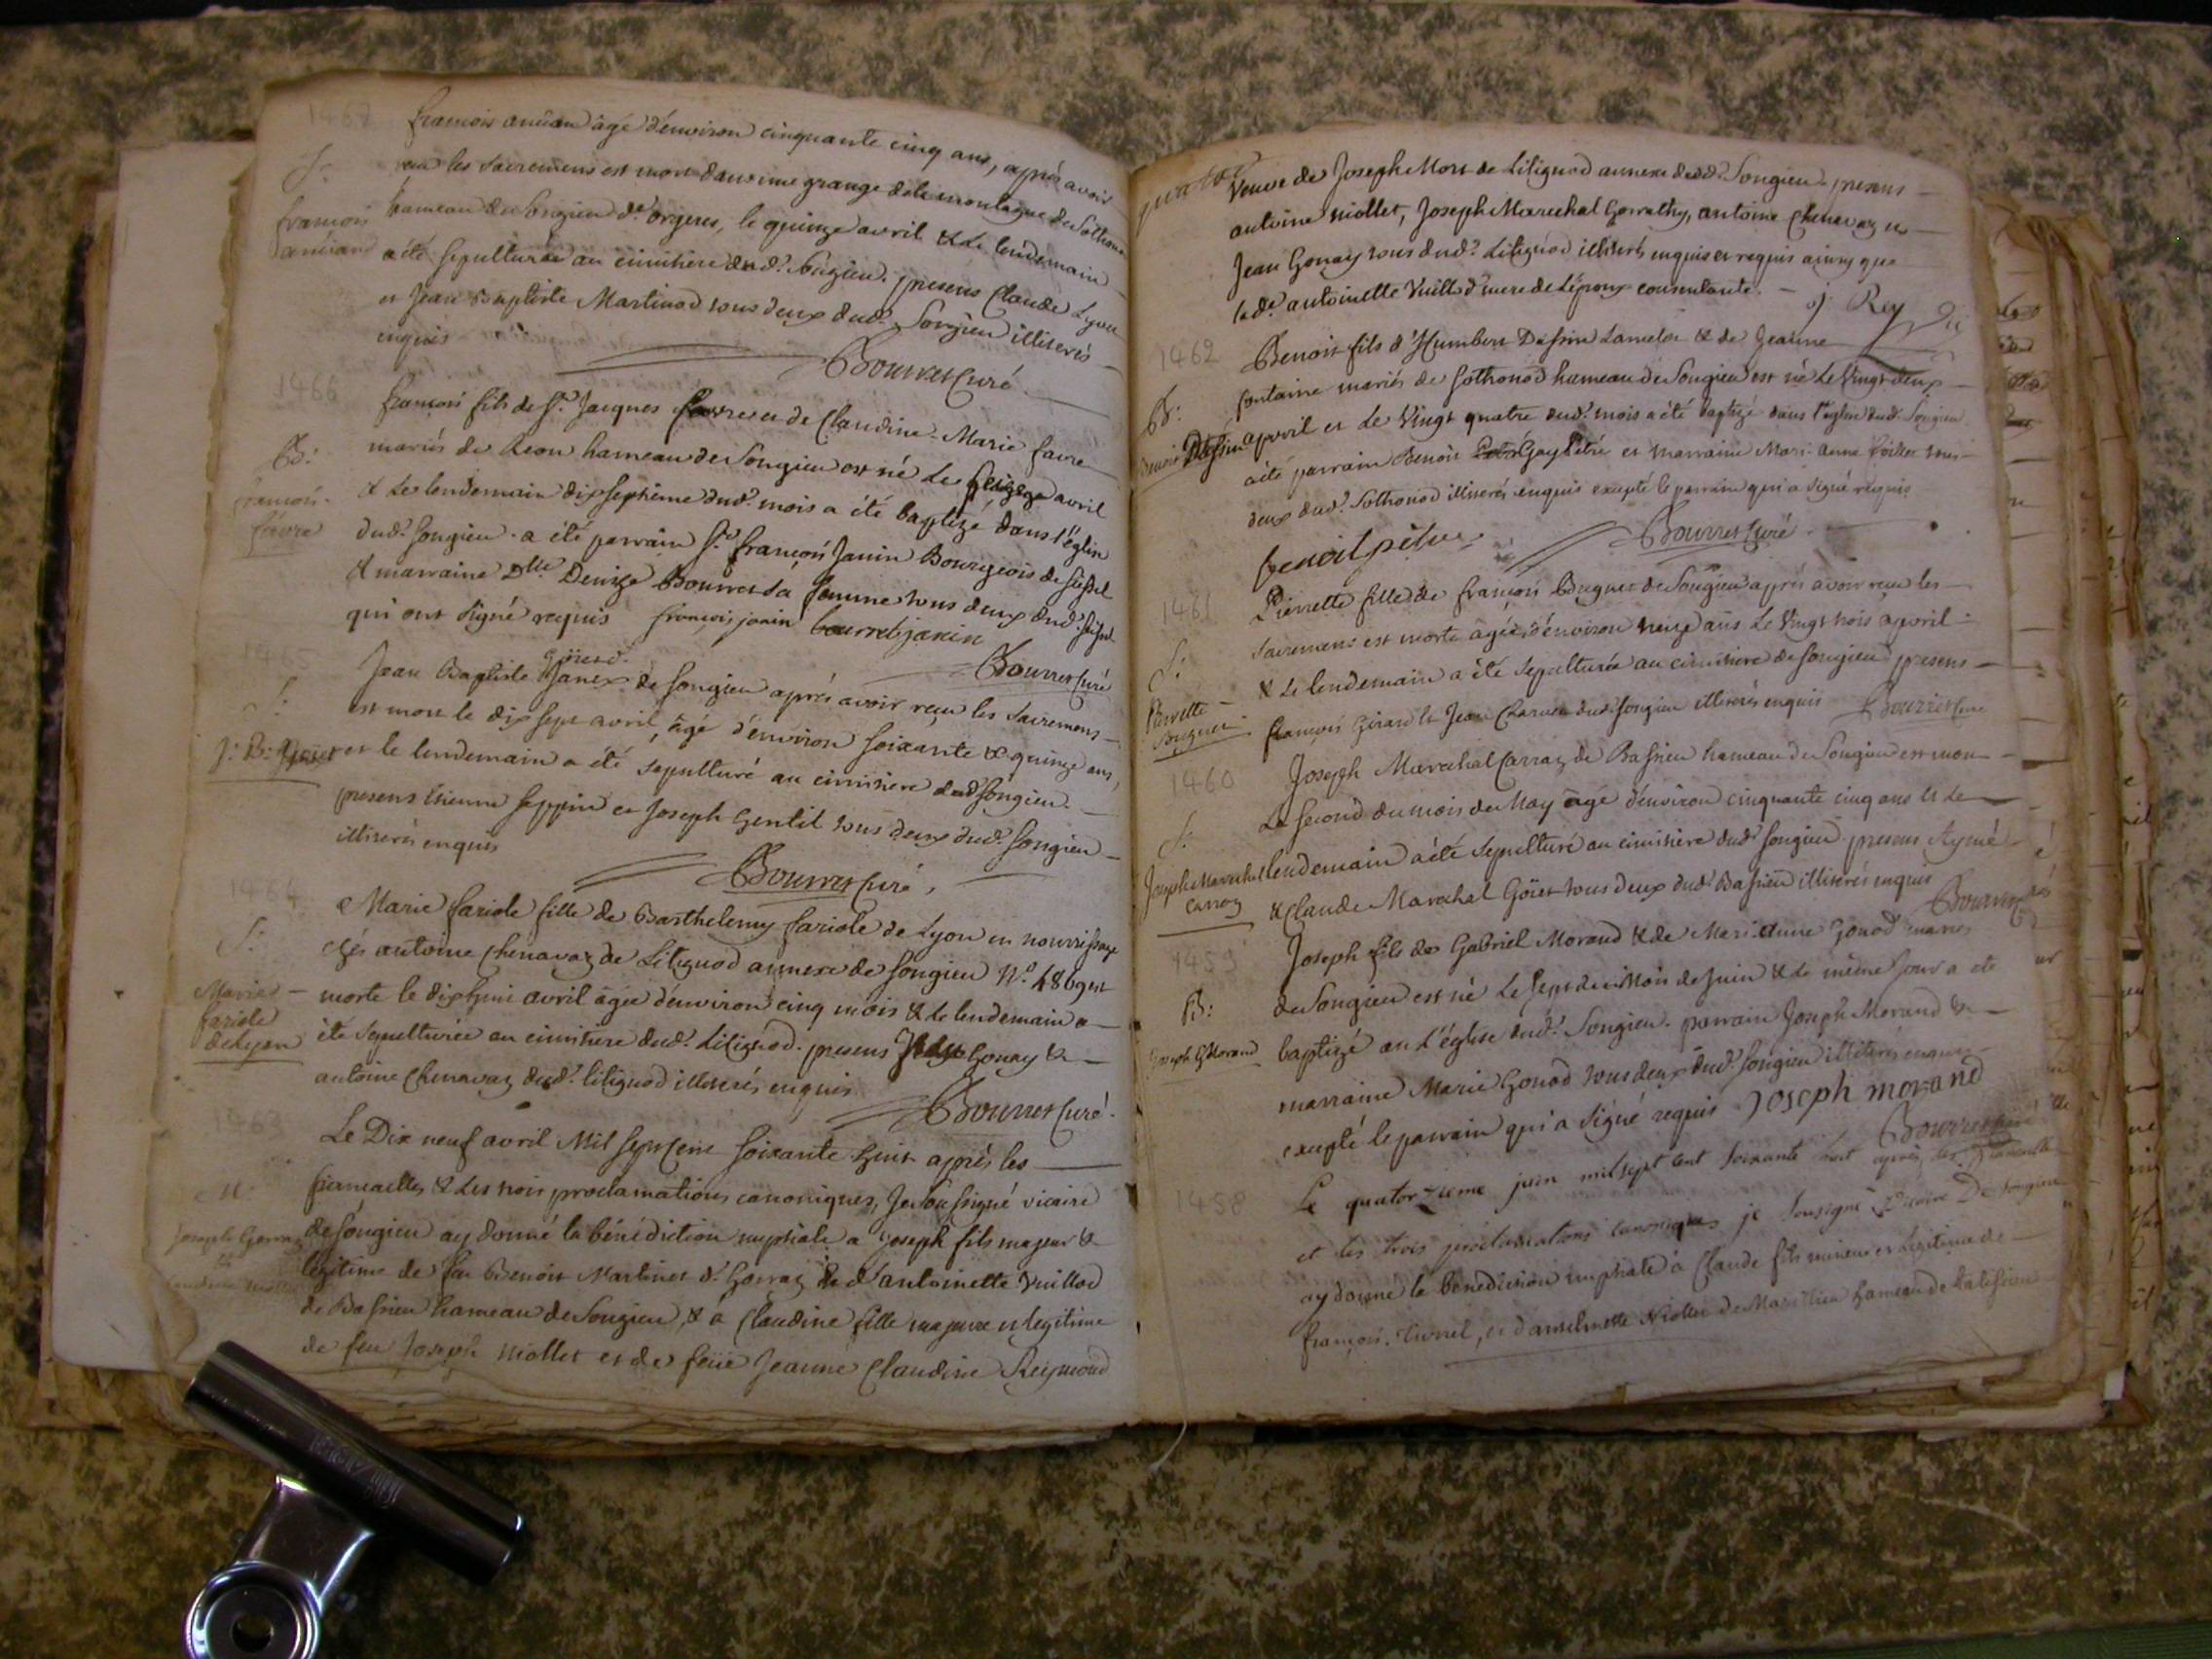 1467
françois anciau âgé d'environ cinquante cinq ans, après avoir
reçu les sacremens est mort dans une grange de la montagne de Sothonod
hameau de Songieu de orgeres, le quinze avril & le lendemain
a été sepulturée au cimitiere dud. Songieu. presens Claude Lyon
et Jean Baptiste Martinod tous deux dud. Songieu illiterés
enquis
Bourret Curé
S:
françois
1466
françois fils de Sr. Jacques favre et de Claudine Marie favre
mariés de hameau de Songieu est né le seize avril
& le lendemain dix septieme dud. mois a été baptizé dans l'église
dud. Songieu. a été parrain Sr. françois Janin Bourgeois de Seissel
& marraine Dlle Denize Bourret sa femme tous deux dud. Seissel
qui ont signé requis françois janin bourret janin
Bourret Curé
B:
françois
favre
Jean Baptiste de Songieu après avoir reçu les sacremens
est mort le dix sept avril, âgé d'environ soixante & quinze ans,
et le lendemain a été sepulturé au cimitiere dud Songieu.
presens Etienne Seppin et Joseph Gentil tous deux dud. Songieu
illiterés enquis
Bourret Curé
S:
J: B:
1464
Marie fariole fille de Barthelemy fariole de Lyon en nourrissage
chés antoine Chenavaz de Litignod annexe de Songieu No. 4869 est
morte le dix huit avril âgée d'environ cinq mois & le lendemain a
été sepulturée au cimitiere dud. Litignod. presens Gonay &
antoine Chenavaz dud. litignod illiterés enquis
Bourret Curé
S:
Marie
fariole
de Lyon
1463
Le Dix neuf avril Mil sept cent soixante huit après les
fiancailles & les trois proclamations canoniques, Je soussigné vicaire
de Songieu ay donné la bénédiction nuptiale a Joseph fils majeur &
legitime de feu Benoit Martinet d. Gorraz & d'antoinette Vuillod
de Bassieu hameau de Songieu, & a Claudine fille majeure et legitime
de feu Joseph niollet et de feüe Jeanne Claudine Reymond
M:
Joseph Gorraz
Veuve de Joseph Mort de Litignod annexe dud. Songieu. presens
antoine niollet, Joseph Marechal Gorrathy, antoine Chenavaz et
Jean Gonay tous dud. Litignod illiterés enquis et requis ainsy que
lad. antoinette Vuillod mere de l'époux consentante.
j Rey
1462
Benoit fils d'Humbert Dessin Lamelon & de Jeanne
fontaine mariés de Sothonod hameau de Songieu est né le Vingt deux
avril et le Vingt quatre dud. mois a été baptizé dans l'église dud. Songieu
a été parrain Benoit Gay Pétré et marraine Marie anne tous
deux dud. Sothonod illiterés enquis excepté le parrain qui a signé requis
benoit
Bourret Curé
B:
Benoit Dessin
1461
Pierrette fille de françois Buguet de Songieu après avoir reçu les
sacremens est morte âgée d'environ neuf ans le Vingt trois avril
& le lendemain a été sepulturée au cimitiere de Songieu presens
françois Girard & Jean dud Songieu illiterés enquis Bourret Curé
S:
Pierrette
Buguet
1460
Joseph Marechal Carraz de Bassieu hameau de Songieu est mort
Le second du mois de May âgé d'environ cinquante cinq ans & le
lendemain a été sepulturé au cimitiere dud Songieu. presens Aymé
& Claude Marechal Goiet tous deux dud. Bassieu illiterés enquis
Bourret
S:
Joseph Marechal
Carraz
1459
Joseph fils de Gabriel Morand & de Marie anne Gonod mariés
de Songieu est né le sept du mois de Juin & le même jour a été
baptizé en l'église dud. Songieu. parrain Joseph Morand &
marraine Marie Gonod tous deux dud. Songieu illiterés enquis
excepté le parrain qui a signé requis Joseph morand
Bourret Curé
B:
Joseph Morand
1458
Le quatorzieme juin mil sept cent soixante huit après les fiancailles
et les trois proclamations canoniques je sousigné Vicaire De Songieu
ay donné la bénédiction nuptiale à Claude fils mineur et légitime de
françois, et d'anselmette Niollet de hameau de